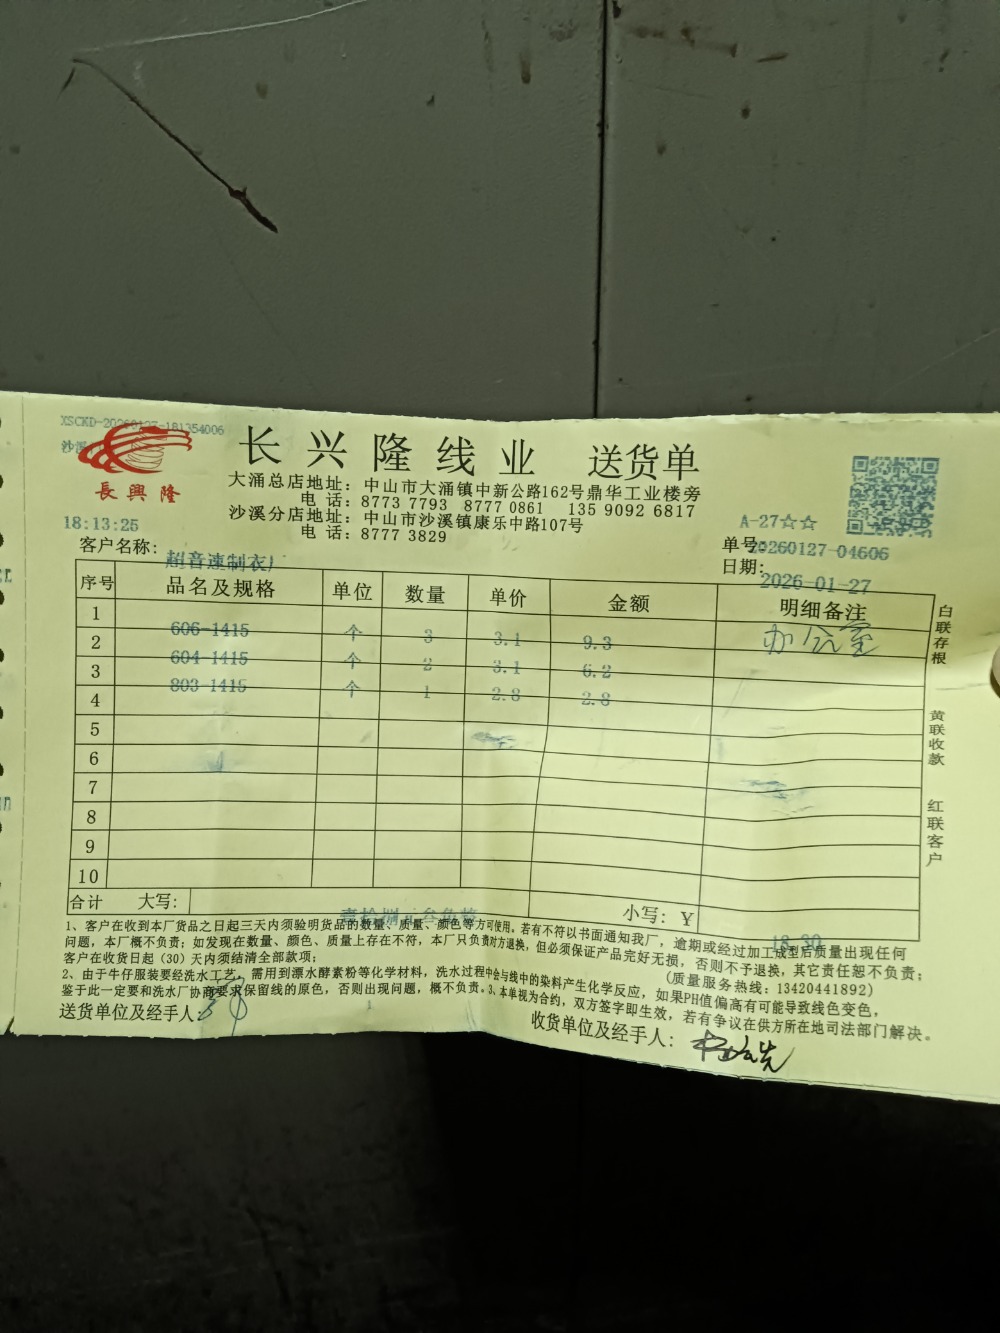 XSCKD-20260127-181354006
長興隆
长兴隆线业 送货单
大涌总店地址：中山市大涌镇中新公路162号鼎华工业楼旁
电话：8773 7793 8777 0861 135 9092 6817
沙溪分店地址：中山市沙溪镇康乐中路107号
电话：8777 3829
18:13:25
A-27☆☆
单号：20260127-04606
客户名称：超音速制衣厂
日期：2026-01-27
序号 品名及规格 单位 数量 单价 金额 明细备注
1 606-1415 个 3 3.1 9.3 办公室
2 604-1415 个 2 3.1 6.2
3 803-1415 个 1 2.8 2.8
4
5
6
7
8
9
10
合计 大写：壹拾捌元叁角整 小写：￥18.30
白联存根
黄联收款
红联客户
1、客户在收到本厂货品之日起三天内须验明货品的数量、质量、颜色等方可使用。若有不符以书面通知我厂，逾期或经过加工成型后质量出现任何
问题，本厂概不负责；如发现在数量、颜色、质量上存在不符，本厂只负责对方退换，但必须保证产品完好无损，否则不予退换，其它责任恕不负责；
客户在收货日起（30）天内须结清全部款项；
(质量服务热线：13420441892)
2、由于牛仔服装要经洗水工艺，需用到漂水酵素粉等化学材料，洗水过程中会与线中的染料产生化学反应，如果PH值偏高有可能导致线色变色，
鉴于此一定要和洗水厂协商要求保留线的原色，否则出现问题，概不负责。3、本单视为合约，双方签字即生效，若有争议在供方所在地司法部门解决。
送货单位及经手人：
收货单位及经手人：